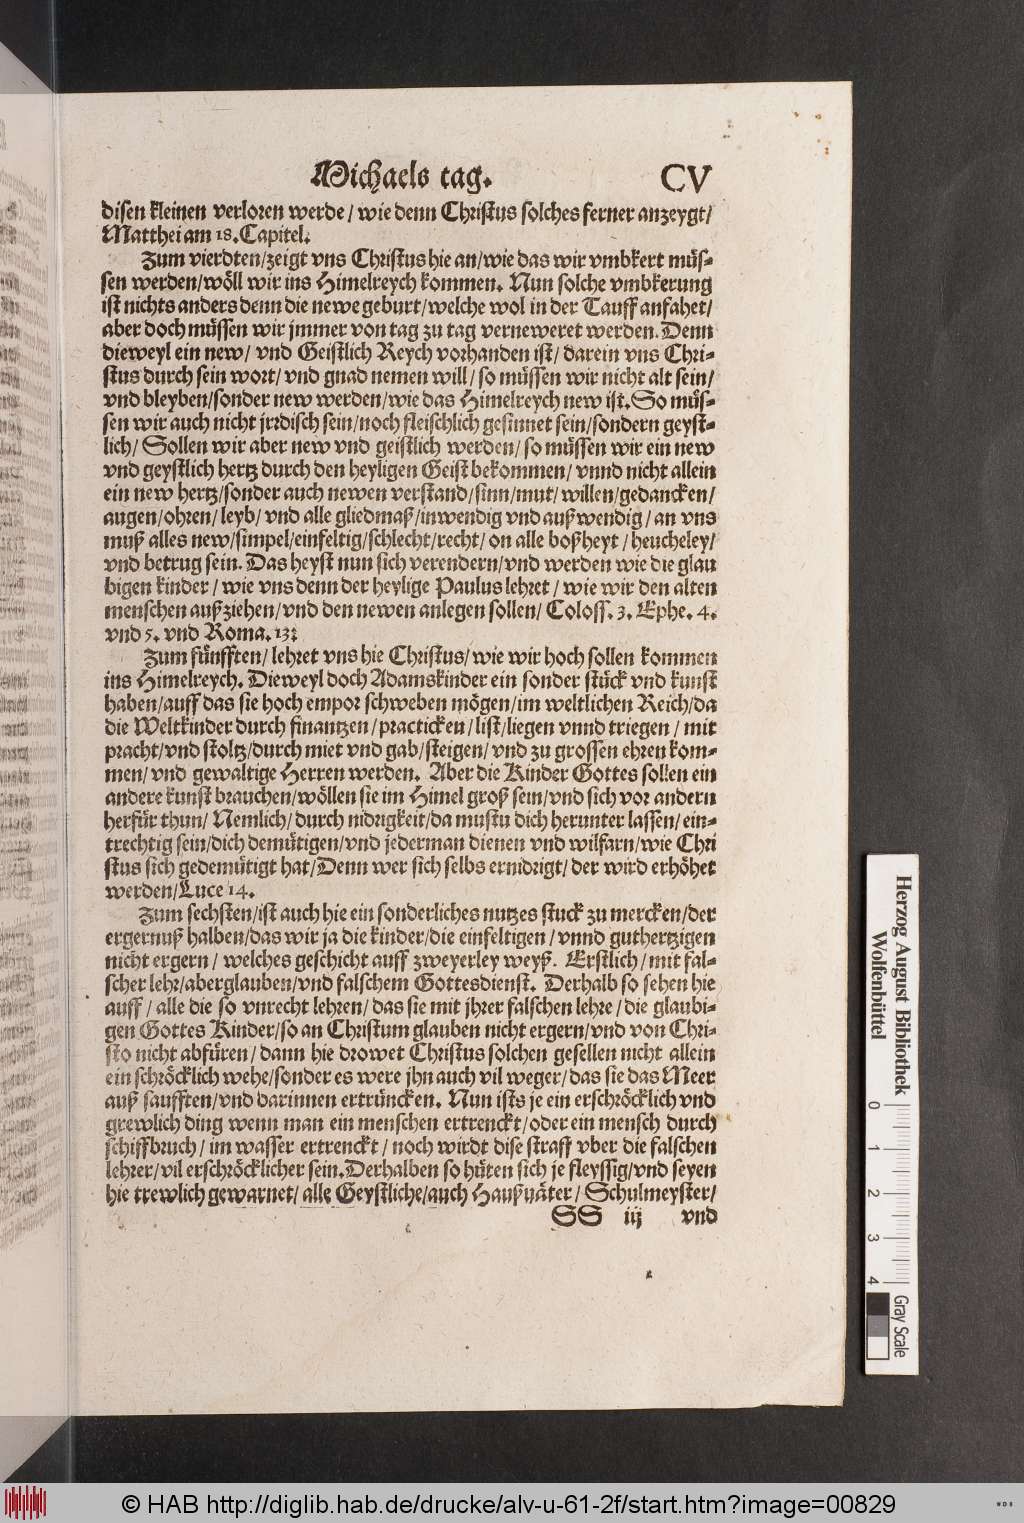 Michaels tag. CV
disen kleinen verloren werde / wie denn Christus solches ferner anzeygt /
Matthei am 18. Capitel.
Zum vierdten / zeigt vns Christus hie an / wie das wir vmbkert müs-
sen werden / wöll wir ins Himelreych kommen. Nun solche vmbkerung
ist nichts anders denn die newe geburt / welche wol in der Tauff anfahet /
aber doch müssen wir jmmer von tag zu tag verneweret werden. Denn
dieweyl ein new / vnd Geistlich Reych vorhanden ist / darein vns Chri-
stus durch sein wort / vnd gnad nemen will / so müssen wir nicht alt sein /
vnd bleyben / sonder new werden / wie das Himelreych new ist. So müs-
sen wir auch nicht jrrdisch sein / noch fleischlich gesinnet sein / sondern geyst-
lich / Sollen wir aber new vnd geistlich werden / so müssen wir ein new
vnd geystlich hertz durch den heyligen Geist bekommen / vnnd nicht allein
ein new hertz / sonder auch newen verstand / sinn / mut / willen / gedancken /
augen / ohren / leyb / vnd alle gliedmaß / inwendig vnd außwendig / an vns
muß alles new / simpel / einfeltig / schlecht / recht / on alle boßheyt / heucheley /
vnd betrug sein. Das heyst nun sich verendern / vnd werden wie die glau
bigen kinder / wie vns denn der heylige Paulus lehret / wie wir den alten
menschen außziehen / vnd den newen anlegen sollen / Coloss. 3. Ephe. 4.
vnd 5. vnd Roma. 13.
Zum fünfften / lehret vns hie Christus / wie wir hoch sollen kommen
ins Himelreych. Dieweyl doch Adamskinder ein sonder stück vnd kunst
haben / auff das sie hoch empor schweben mögen / im weltlichen Reich / da
die Weltkinder durch finantzen / practicken / list / liegen vnnd triegen / mit
pracht / vnd stoltz / durch miet vnd gab / steigen / vnd zu grossen ehren kom-
men / vnd gewaltige Herren werden. Aber die Kinder Gottes sollen ein
andere kunst brauchen / wöllen sie im Himel groß sein / vnd sich vor andern
herfür thun / Nemlich / durch nidrigkeit / da mustu dich herunter lassen / ein-
trechtig sein / dich demütigen / vnd jederman dienen vnd wilfarn / wie Chri
stus sich gedemütigt hat / Denn wer sich selbs ernidrigt / der wird erhöhet
werden / Luce 14.
Zum sechsten / ist auch hie ein sonderliches nutzes stuck zu mercken / der
ergernuß halben / das wir ja die kinder / die einfeltigen / vnnd guthertzigen
nicht ergern / welches geschicht auff zweyerley weyß. Erstlich / mit fal-
scher lehr / aberglauben / vnd falschem Gottesdienst. Derhalb so sehen hie
auff / alle die so vnrecht lehren / das sie mit jhrer falschen lehre / die glaubi-
gen Gottes Kinder / so an Christum glauben nicht ergern / vnd von Chri-
sto nicht abfüren / dann hie drowet Christus solchen gesellen nicht allein
ein schröcklich wehe / sonder es were jhn auch vil weger / das sie das Meer
auß saufften / vnd darinnen ertrüncken. Nun ists je ein erschröcklich vnd
grewlich ding wenn man ein menschen ertrenckt / oder ein mensch durch
schiffbruch / im wasser ertrenckt / noch wirdt dise straff vber die falschen
lehrer / vil erschröcklicher sein. Derhalben so hüten sich je fleyssig / vnd seyen
hie trewlich gewarnet / alle Geystliche / auch Haußuäter / Schulmeyster /
SS iij vnd
Herzog August Bibliothek
Wolfenbüttel
0 1 2 3 4
Gray Scale
© HAB http://diglib.hab.de/drucke/alv-u-61-2f/start.htm?image=00829